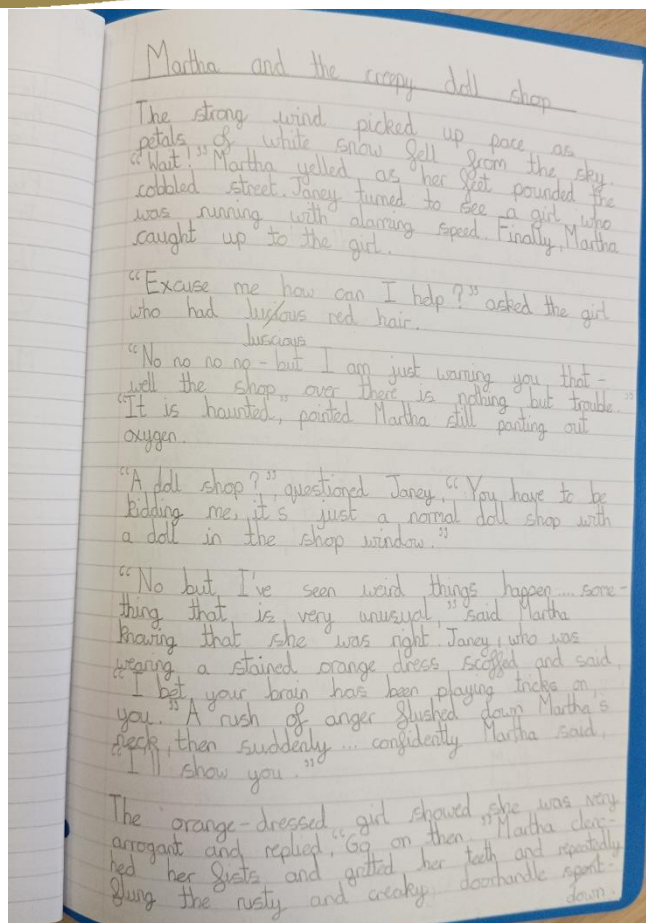 Martha and the creepy doll shop
The strong wind picked up pace as
petals of white snow fell from the sky.
“Wait!” Martha yelled as her feet pounded the
cobbled street. Janey turned to see a girl who
was running with alarming speed. Finally, Martha
caught up to the girl.
“Excuse me how can I help?” asked the girl
who had luxious red hair.
luscious
“No no no no - but I am just warning you that -
well the shop over there is nothing but trouble.”
“It is haunted,” pointed Martha still panting out
oxygen.
“A doll shop?”, questioned Janey, “You have to be
kidding me, it's just a normal doll shop with
a doll in the shop window.”
“No but I've seen weird things happen.... some-
thing that is very unusual,” said Martha
knowing that she was right. Janey, who was
wearing a stained orange dress scoffed and said,
“I bet your brain has been playing tricks on
you.” A rush of anger flushed down Martha's
neck, then suddenly... confidently Martha said,
“I'll show you.”
The orange-dressed girl showed she was very
arrogant and replied, “Go on then.” Martha clenc-
hed her fists and gritted her teeth and repeatedly
flung the rusty and creaky doorhandle
down.